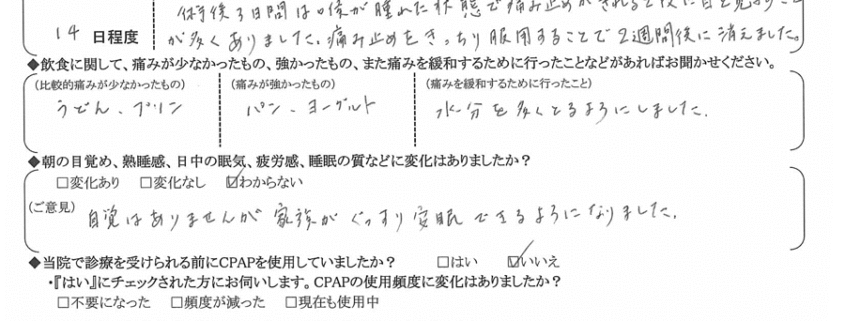 術後3日間は喉が腫れた状態で痛み止めが
14 日程度 が多くありました。痛み止めをきっちり服用することで2週間後に消えました。
◆飲食に関して、痛みが少なかったもの、強かったもの、また痛みを緩和するために行ったことなどがあればお聞かせください。
(比較的痛みが少なかったもの) (痛みが強かったもの) (痛みを緩和するために行ったこと)
うどん、プリン パン、ヨーグルト 水分を多くとるようにしました。
◆朝の目覚め、熟睡感、日中の眠気、疲労感、睡眠の質などに変化はありましたか？
□変化あり □変化なし ☑わからない
(ご意見) 自覚はありませんが家族がぐっすり安眠できるようになりました。
◆当院で診療を受けられる前にCPAPを使用していましたか？ □はい ☑いいえ
・『はい』にチェックされた方にお伺いします。CPAPの使用頻度に変化はありましたか？
□不要になった □頻度が減った □現在も使用中